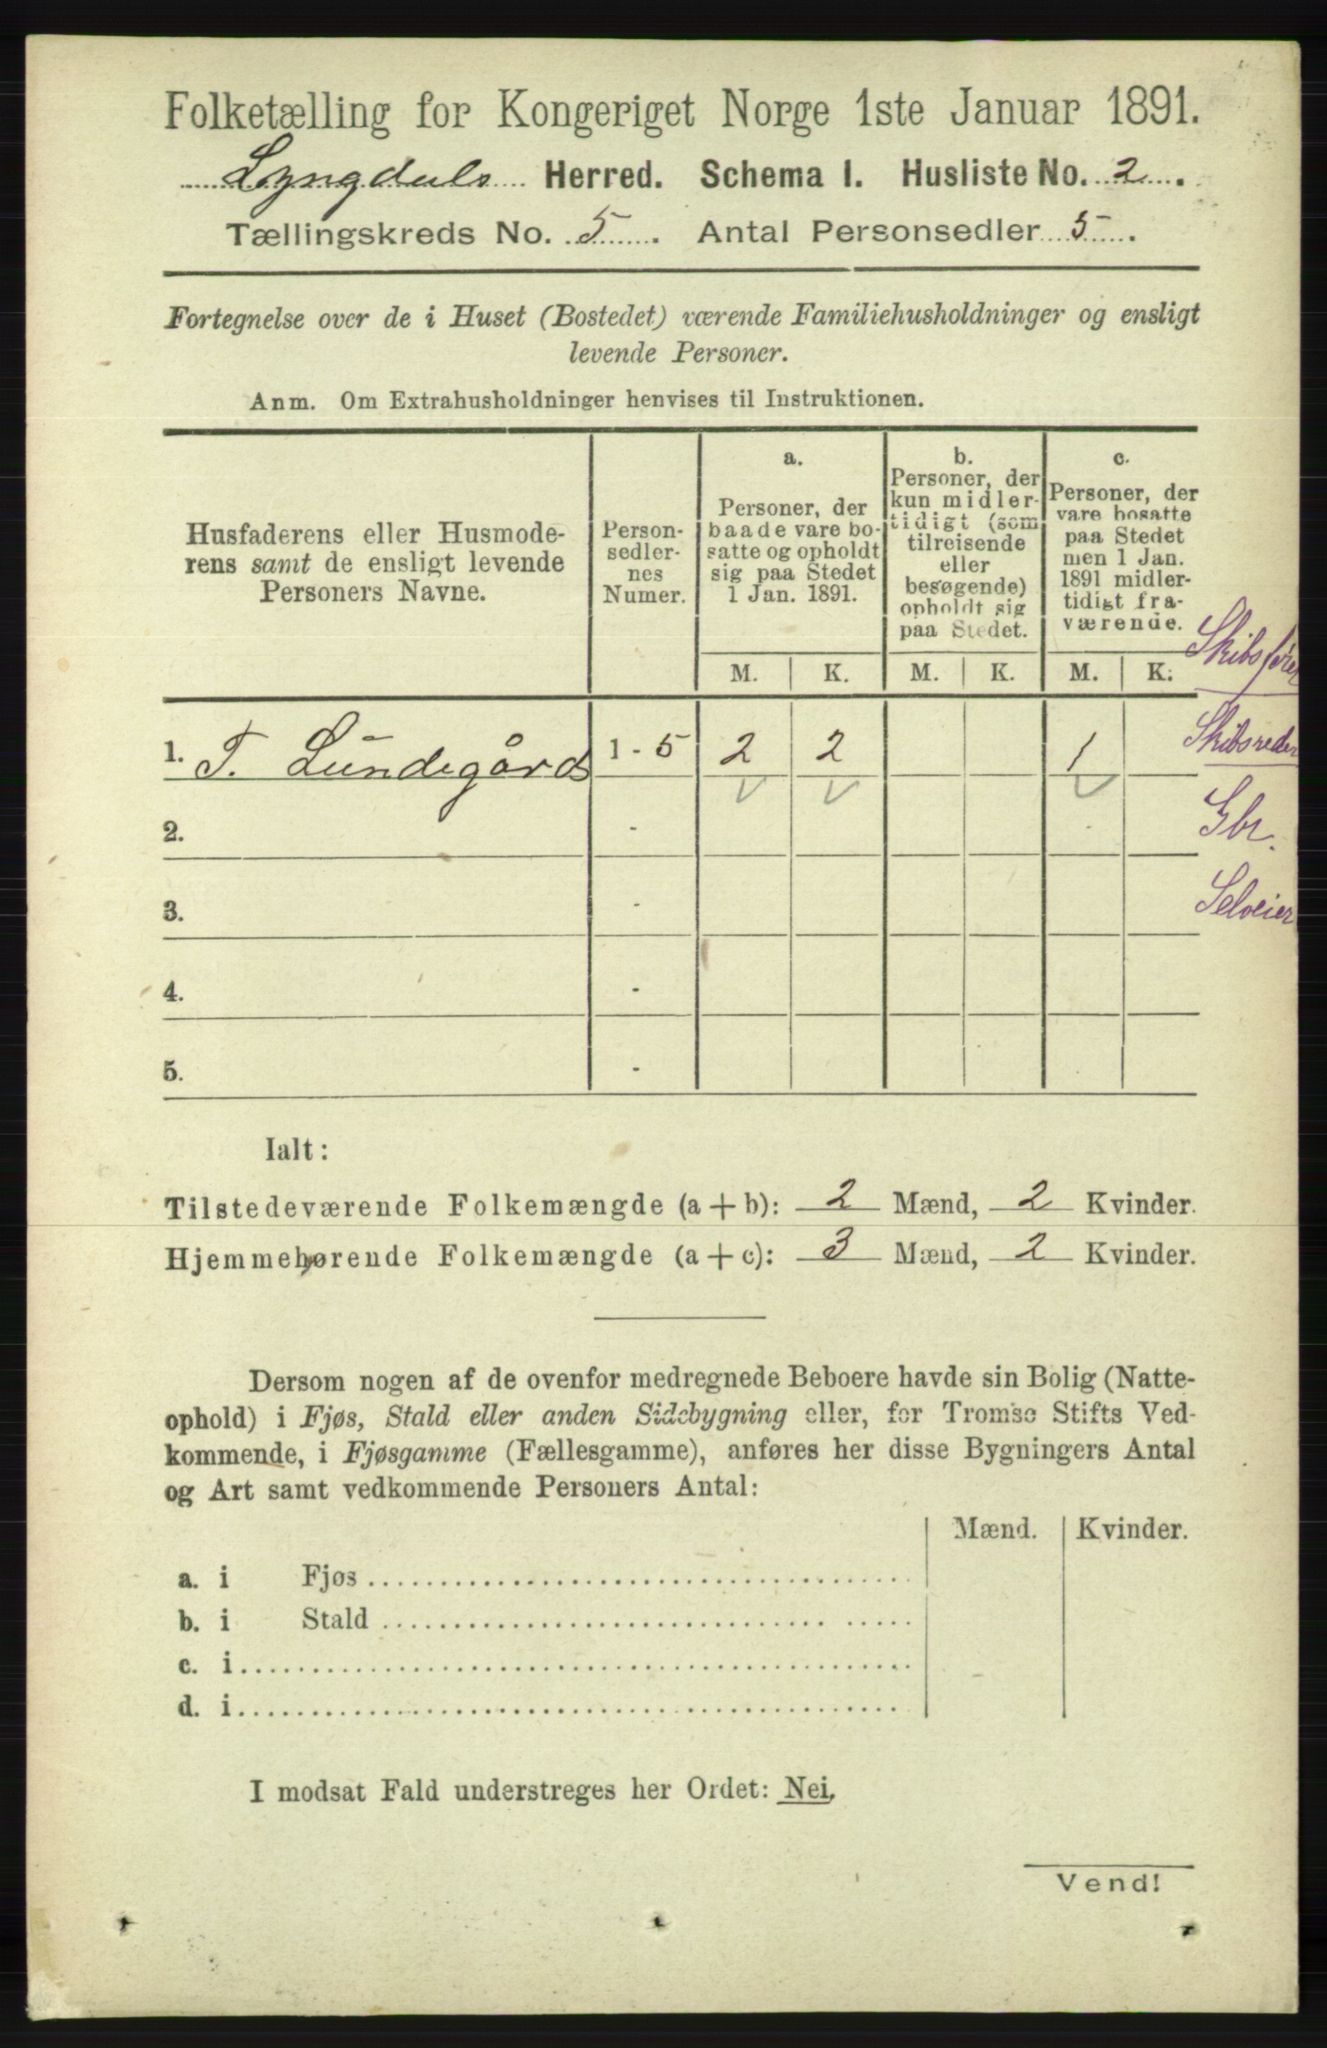 Folketælling for Kongeriget Norge 1ste Januar 1891.
Lyngdals Herred. Schema I. Husliste No. 2.
Tællingskreds No. 5. Antal Personsedler 5.
Fortegnelse over de i Huset (Bostedet) værende Familiehusholdninger og ensligt
levende Personer.
Anm. Om Extrahusholdninger henvises til Instruktionen.
Husfaderens eller Husmode-
rens samt de ensligt levende
Personers Navne.
Person-
sedler-
nes
Numer.
a.
Personer, der
baade vare bo-
satte og opholdt
sig paa Stedet
1 Jan. 1891.
b.
Personer, der
kun midler-
tidigt (som
tilreisende
eller
besøgende)
opholdt sig
paa Stedet.
c.
Personer, der
vare bosatte
paa Stedet
men 1 Jan.
1891 midler-
tidigt fra-
værende.
M. K. M. K. M. K.
Skibsfører
1. T. Lundegård 1 - 5 2 2 1
Skibsreder
2. -
Gbr.
3. -
Selveier
4. -
5. -
Ialt:
Tilstedeværende Folkemængde (a + b): 2 Mænd, 2 Kvinder.
Hjemmehørende Folkemængde (a + c): 3 Mænd, 2 Kvinder.
Dersom nogen af de ovenfor medregnede Beboere havde sin Bolig (Natte-
ophold) i Fjøs, Stald eller anden Sidebygning eller, for Tromsø Stifts Ved-
kommende, i Fjøsgamme (Fællesgamme), anføres her disse Bygningers Antal
og Art samt vedkommende Personers Antal:
Mænd. Kvinder.
a. i Fjøs
b. i Stald
c. i
d. i
I modsat Fald understreges her Ordet: Nei.
Vend!